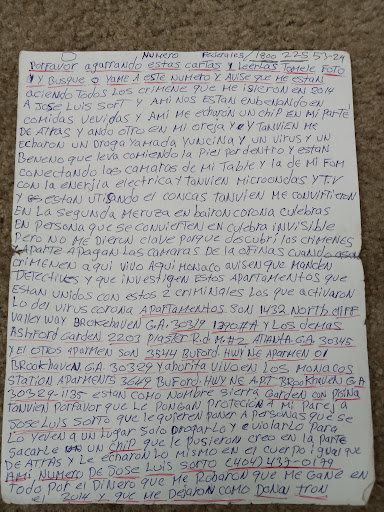 Numero Federales/1800 225 53-24
Porfavor agarrando estas cartas y leerlas tomele Foto
y Busque o yame A este numero y Avise que me estan
aciendo todos los crimene que me isieron en 2014
A Jose Luis Sort y Ami nos Estan enbenando en
comidas vevidas y Ami me echaron un chip en mi parte
De Atras y ando otro en mi oreja y tanvien me
echaron un Droga yamada yuncina y un virus y un
Beneno que leva comiendo la piel por dentro y estan
conectando las camaras de mi Table y la de mi Fom
con la enerjia electrica y tanvien microondas y TV
y estan utilsando el concas tanvien me convirtieron
en la segunda meruza en baiton corona culebras
en persona que se convierten en culebra invisible
Pero no me Dieron clave porque descubri los crimenes
y aparte Apagan las camaras de la ofinas cuando
crimenen aqui vivo Aqui monaco avisen que manden
Detectives y que investigen estos Apartamentos que
estan unidos con estos 2 criminales los que activaron
lo del virus corona Apartamentos son 1439 North cliff
valley way Brokehaven GA. 30319 y Los demas
Ashford Garden 2203 plaster R.d M#2 Atlanta GA. 30345
y el otros Aparmen son 3544 Buford Hwy Ne Aparmen 01
Brookhaven GA. 30329 y ahorita vivo en Los monacos
station Aparments 3649 Buford Hwy NE APT Brookhaven GA
30329-1135 estan como nombre sierra Garden con pisina
tanvien porfavor que le pongan protección A mi pareja
Jose Luis Sorto que le quieren poner A personas que se
lo yeven a un lugar solo Droparlo y eviolarlo para
sacarle un chip que le pusieron creo en la parte
De Atras y Le echaron lo mismo en el cuerpo igual que
Ami Numero De Jose Luis Sorto (404) 437-0179
todo por el Dinero que me Robaron que me Gane en
el 2014 y que me Dejaron como Donal tron